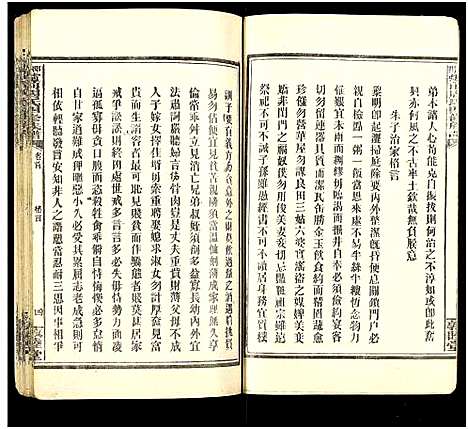 弟本諸人心苟能克自振拔則何治之不淳頽或此奮
興亦何風之不古率土欽哉無負朕意
朱子治家格言
黎明即起灑掃庭除要內外整潔旣昏便息關鎖門戶必
親自檢點一粥一飯當思來處不易半絲半縷恆念物力
維艱宜未雨而綢繆毋臨渴而掘井自奉必須儉約宴客
切勿留連器具質而潔瓦缶勝金玉飲食約而精園蔬愈
珍饈勿營華屋勿謀良田三姑六婆實淫盜之媒婢美妾
嬌非閨門之福奴僕勿用俊美妻妾切忌艷粧祖宗雖遠
祭祀不可不誠子孫雖愚經書不可不讀居身務期質樸
訓子要有義方勿貪意外之財勿飲過量之酒與肩挑貿
易勿佔便宜見貧苦親鄰須加溫恤刻薄成家理無久享
倫常乖舛立見消亡兄弟叔姪須分多潤寡長幼內外宜
法肅辭嚴聽婦言乖骨肉豈是丈夫重貲財薄父母不成
人子嫁女擇佳婿毋索重聘娶媳求淑女勿計厚奩見富
貴而生諂容者最可恥遇貧窮而作驕態者賤莫甚居家
戒爭訟訟則終凶處世戒多言言多必失毋恃勢力而凌
逼孤寡勿貪口腹而恣殺牲禽乖僻自是悔悞必多頹惰
自甘家道難成狎昵惡少久必受其累屈志老成急則可
相依輕聽發言安知非人之譖愬當忍耐三思因事相爭
卷首
四